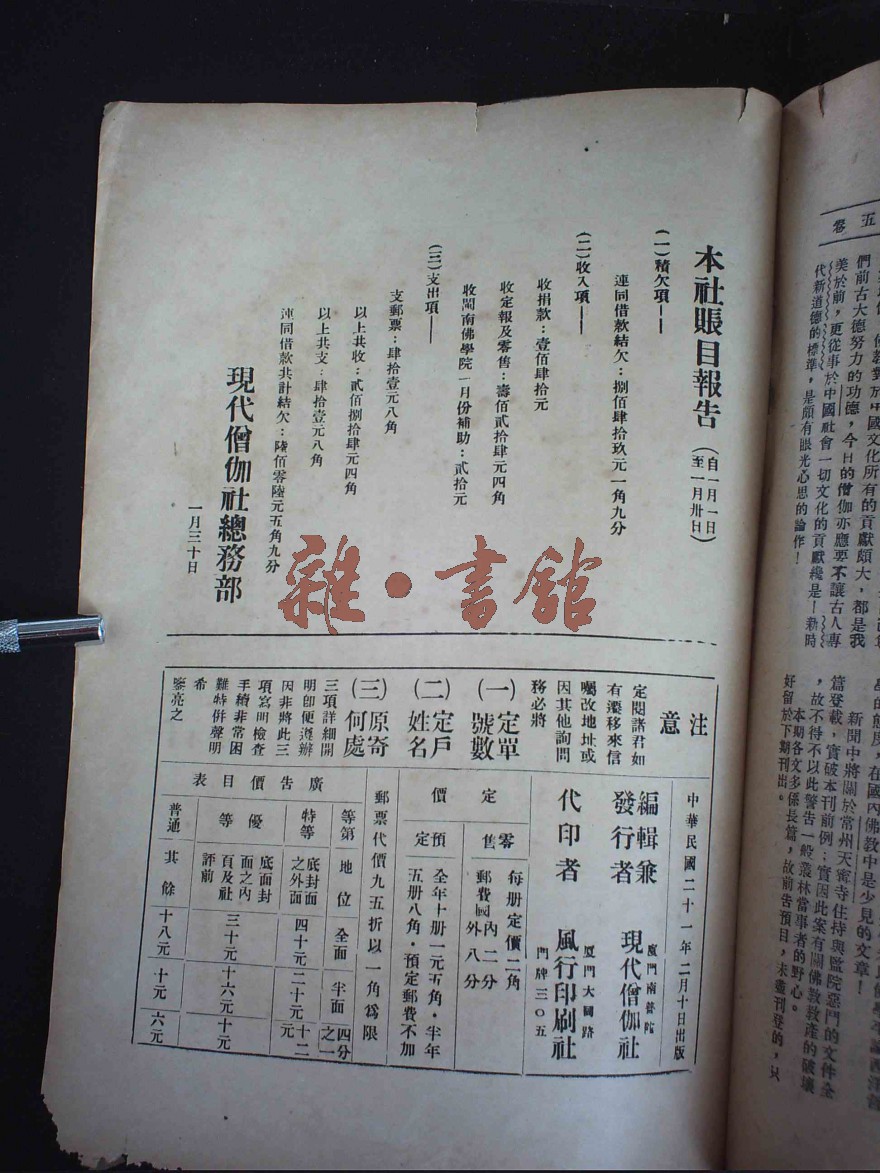 五卷
佛教對於中國文化所有的貢獻頗大，都是我
們前古大德努力的功德，今日的僧伽亦應要不讓古人專
美於前，更從事於中國社會一切文化的貢獻纔是！新時
代新道德的標準，是頗有眼光心思的論作！
的態度，在國內佛教中是少見的文章！
新聞中將關於常州天寗寺住持與監院惡鬥的文件全
篇登載，實破本刊前例：實因此案有關佛教教產的破壞
，故不得不以此警告一般叢林當事者的野心。
本期各文多係長篇，故前告預目，未盡刊登的，只
好留於下期刊出。
本社賬目報告（自一月一日至一月卅日）
（一）積欠項——
連同借款結欠：捌佰肆拾玖元一角九分
（二）收入項——
收捐款：壹佰肆拾元
收定報及零售：壽佰貳拾肆元四角
收閩南佛學院一月份補助：貳拾元
（三）支出項——
支郵票：肆拾壹元八角
以上共收：貳佰捌拾肆元四角
以上共支：肆拾壹元八角
連同借款共計結欠：陸佰零陸元五角九分
現代僧伽社總務部
一月三十日
雜·書館
注意
定閱諸君如
有遷移來信
囑改地址或
因其他詢問
務必將
（一）定單號數
（二）定戶姓名
（三）原寄何處
三項詳細開
明卽便遵辦
因非將此三
項寫明檢查
手續非常困
難特併聲明
希
鑒亮之
中華民國二十一年二月十日出版
編輯兼發行者
廈門南普陀
現代僧伽社
代印者
廈門大同路
風行印刷社
門牌三〇五
定價
零售
每册定價二角
郵費國內二分
外八分
預定
全年十册一元五角・半年
五册八角・預定郵費不加
郵票代價九五折以一角爲限
廣告價目表
等第 地位 全面 半面 四分之一
特等 底封面之外面 四十元 二十元 十二元
優等 底面封面之內頁及社評前 三十元 十六元 十元
普通 其餘 十八元 十元 六元